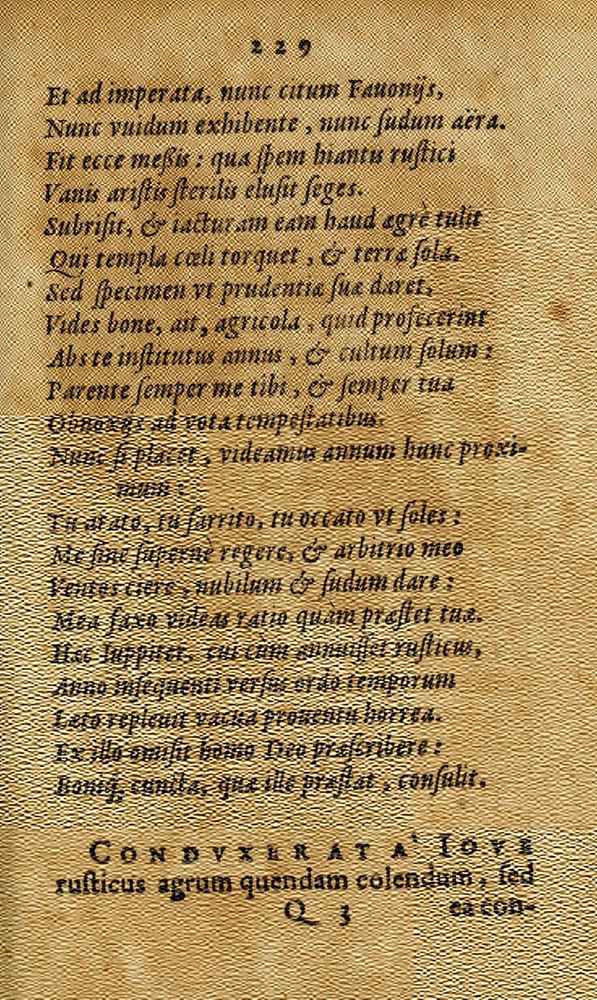 229
Et ad imperata, nunc citum Fauonijs,
Nunc vuidum exhibente, nunc ſudum aëra.
Fit ecce meßis: qua ſpem hiantis ruſtici
Vanis ariſtis ſterilis eluſit ſeges.
Subriſit, & iacturam eam haud ægrè tulit
Qui templa cœli torquet, & terræ ſola.
Sed ſpecimen vt prudentiæ ſuæ daret,
Vides bone, ait, agricola, quid profecerint
Abs te inſtitutus annus, & cultum ſolum:
Parente ſemper me tibi, & ſemper tua
Obnoxijs ad vota tempeſtatibus.
Nunc ſi placet, videamus annum hunc proxi-
mum:
Tu arato, tu ſarrito, tu occato vt ſoles:
Me ſine ſupernè regere, & arbitrio meo
Ventos ciere, nubilum & ſudum dare:
Mea faxo videas ratio quàm præſtet tuæ.
Hæc Iuppiter. cui cùm annuiſſet ruſticus,
Anno inſequenti verſus ordo temporum
Læto repleuit vacua prouentu horrea.
Ex illo omiſit homo Deo præſcribere:
Boniq́; cuncta, quæ ille præſtat, conſulit.
CONDVXERAT A' IOVE
ruſticus agrum quendam colendum, ſed
Q 3 ea con-